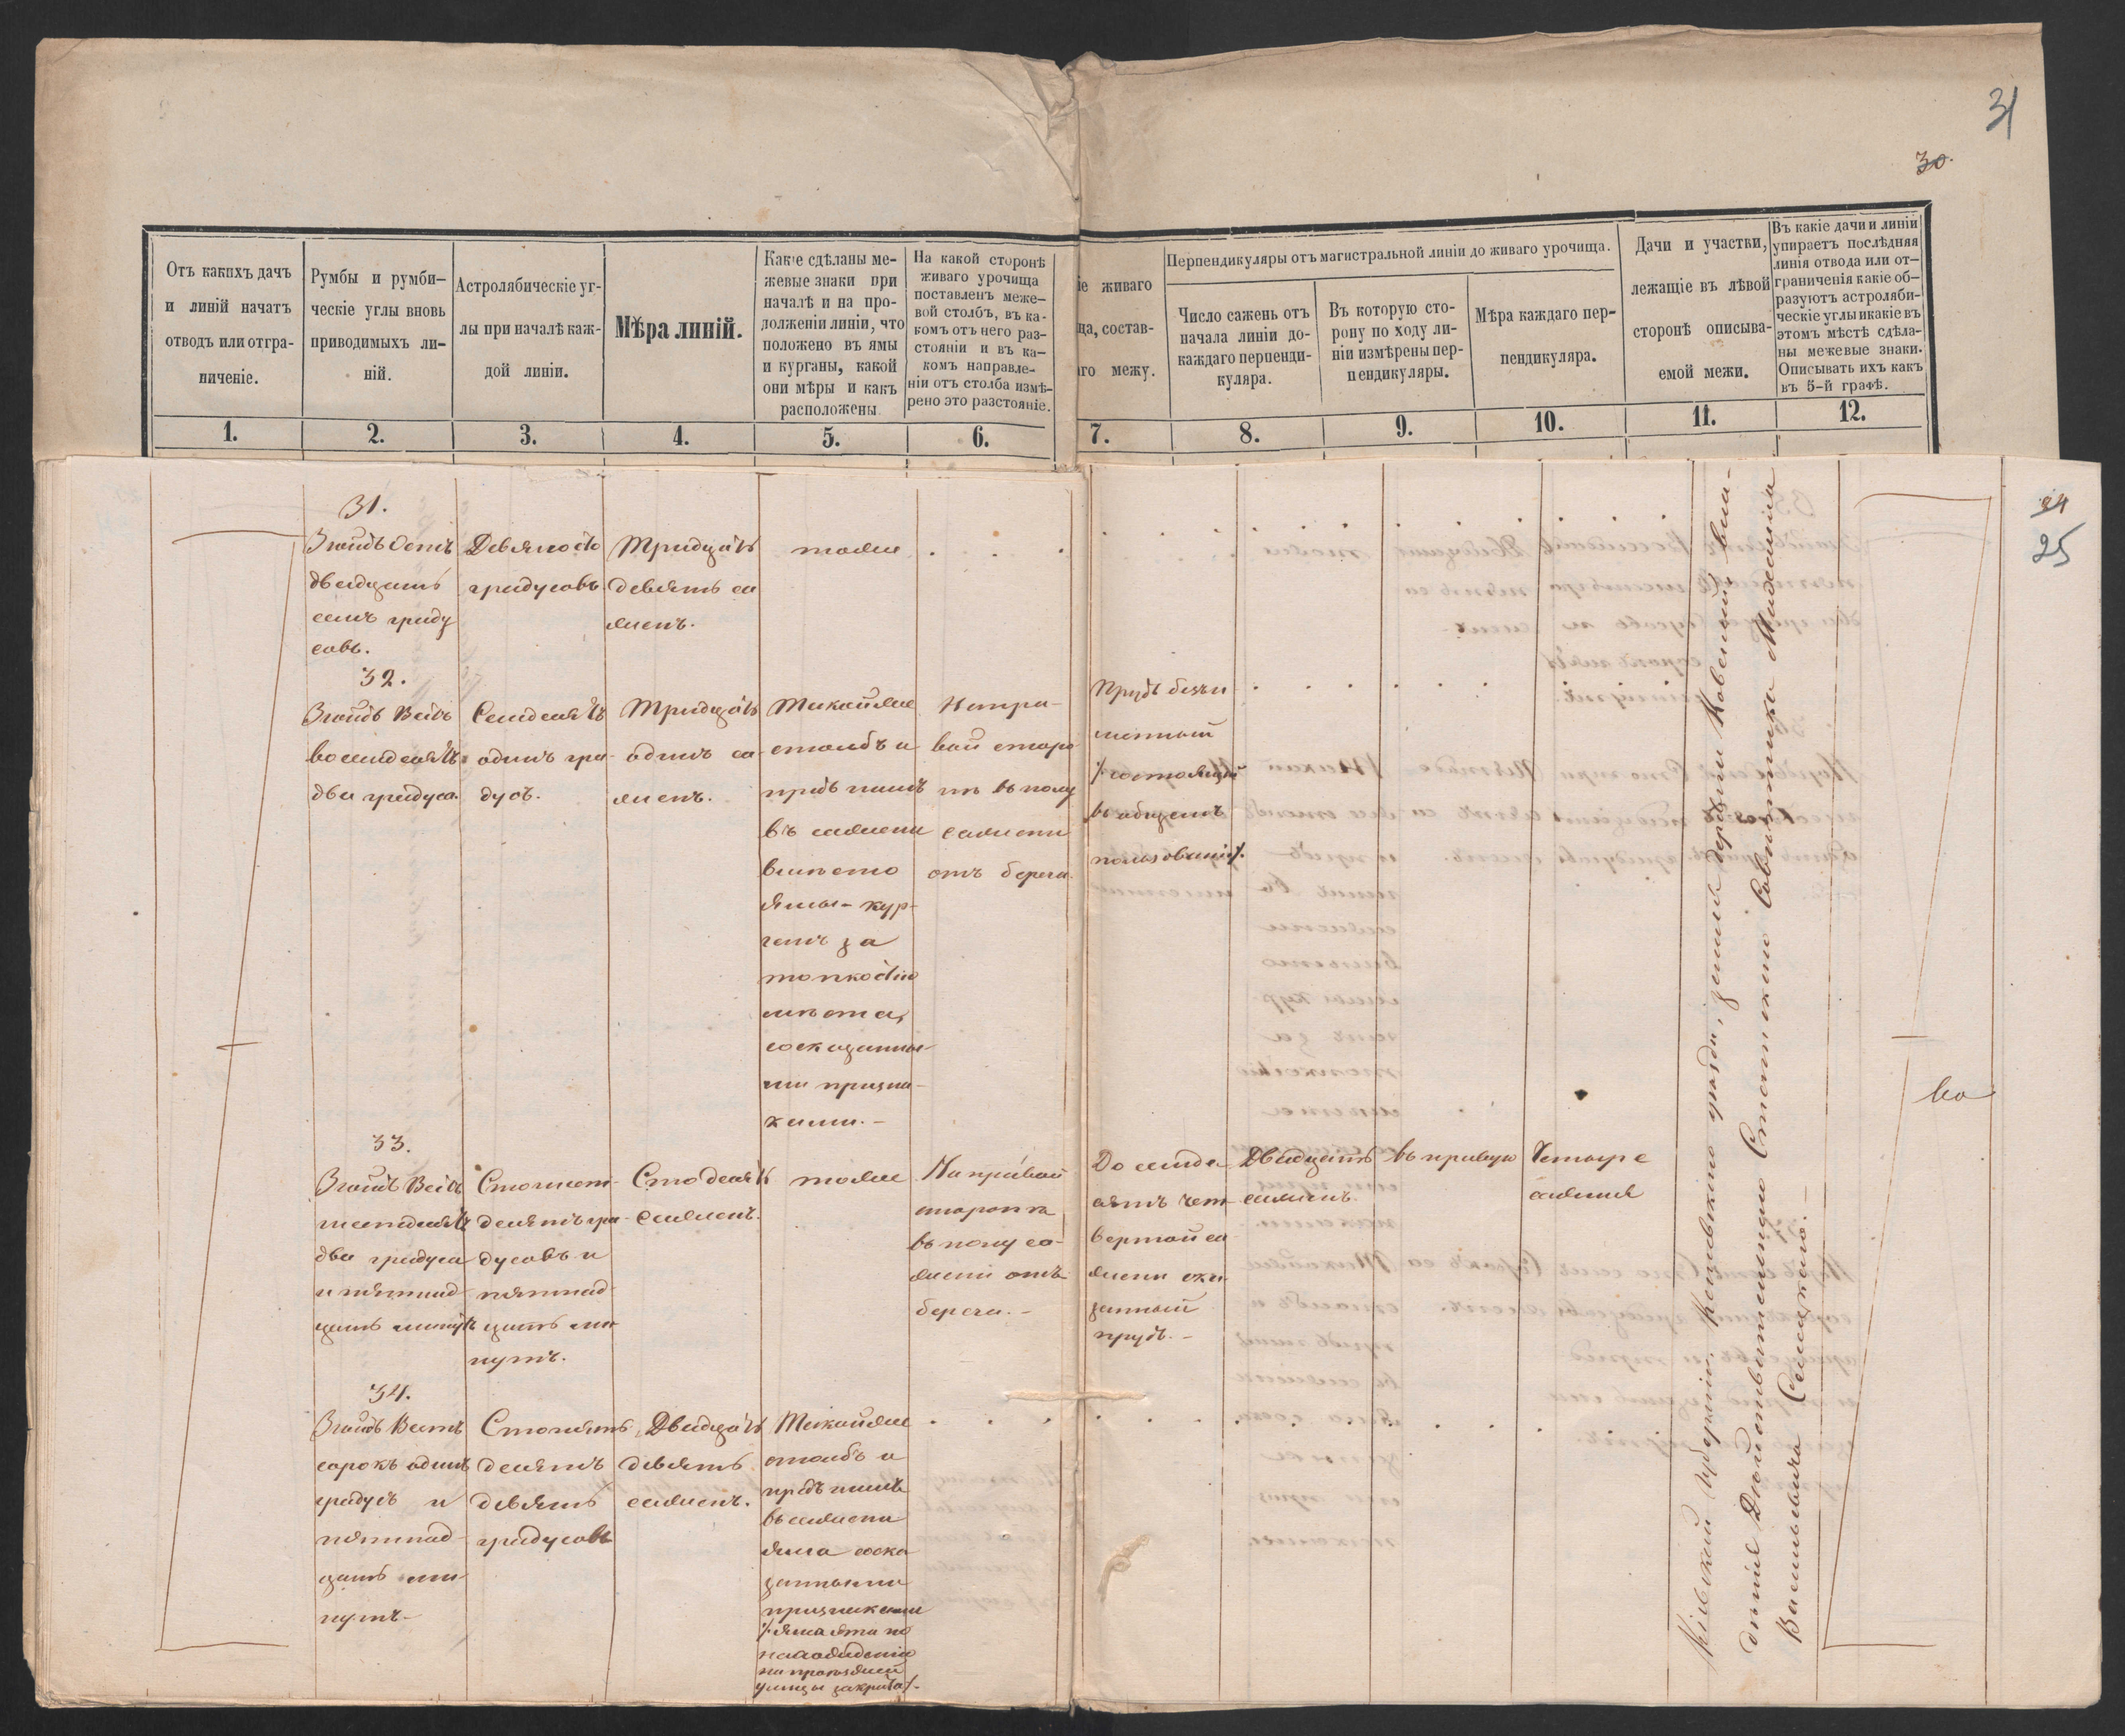 31
30.
Отъ какихъ дачъ
и линій начатъ
отводъ или отгра-
ниченіе.
Румбы и румби-
ческіе углы вновь
приводимыхъ ли-
ній.
Астролябическіе уг-
лы при началѣ каж-
дой линіи.
Мѣра линій.
Какіе сдѣланы ме-
жевые знаки при
началѣ и на про-
долженіи линіи, что
положено въ ямы
и курганы, какой
они мѣры и какъ
расположены
На какой сторонѣ
живаго урочища
поставленъ меже-
вой столбъ, въ ка-
комъ отъ него раз-
стояніи и въ ка-
комъ направле-
ніи отъ столба измѣ-
рено это разстояніе.
іе живаго
ща, состав-
го межу.
Перпендикуляры отъ магистральной линіи до живаго урочища.
Число сажень отъ
начала линіи до-
каждаго перпенди-
куляра.
Въ которую сто-
рону по ходу ли-
ніи измѣрены пер-
пендикуляры.
Мѣра каждаго пер-
пендикуляра.
Дачи и участки,
лежащіе въ лѣвой
сторонѣ описыва-
емой межи.
Въ какіе дачи и линіи
упираетъ послѣдняя
линія отвода или от-
граниченія какіе об-
разуютъ астроляби-
ческіе углы и какіе въ
этомъ мѣстѣ сдѣла-
ны межевые знаки.
Описывать ихъ какъ
въ 5-й графѣ.
1.
2.
3.
4.
5.
6.
7.
8.
9.
10.
11.
12.
24
25
31.
Зюйдъ Остъ
двадцать
семь граду
совъ.
Девяносто
градусовъ.
Тридцать
девять са
женъ.
тоже
32.
Зюйдъ Вестъ
восемдесятъ
два градуса.
Семдесятъ
одинъ гра-
дусъ.
Тридцать
одинъ са-
женъ.
Такойже
столбъ и
предъ нимъ
въ сажени
вмѣсто
ямы - кур-
ганъ за
топкостію
мѣста,
сосказанны-
ми призна-
ками. -
На пра-
вой сторо
нѣ въ полу
сажени
отъ берега.
Прудъ безъи
менный
/:состоящій
въ общемъ
пользованіи:/.
33.
Зюйдъ Вестъ
шестдесятъ
два градуса
и пятнад-
цать минутъ
Стошест-
десятъ гра-
дусовъ и
пятнад-
цать ми
нутъ.
Сто десять
саженъ.
тоже
На правой
сторонѣ
въ полу са-
жени отъ
берега. -
До семиде
сятъ чет-
вертой са
жени ска-
занный
прудъ. -
Двадцать
саженъ.
въ правую
Четыре
сажня
34.
Зюйдъ Вестъ
сорокъ одинъ
градусъ и
пятнад-
цать ми
нутъ -
Стопять
десятъ
девять
градусовъ
Двадцать
девять
саженъ.
Такойже
столбъ и
предъ нимъ
въ сажени
яма соска
занными
признаками
/:яма эта по
нахожденію
на проезжей
улицы закрыта:/.
Кіевской губерніи, уѣзда, земли деревни владѣніе Дѣйствительнаго Статскаго Совѣтника
Васильевича
во